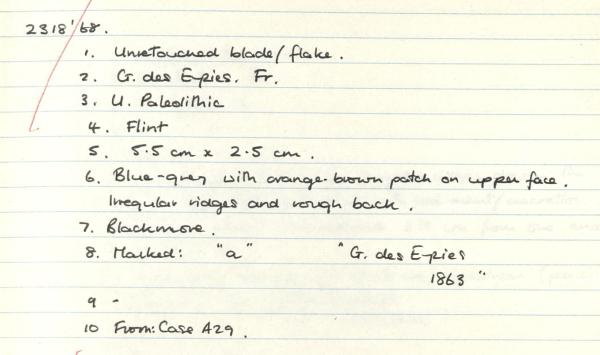 2318'68.
1. Unretouched blade/flake.
2. G. des Eyzies. Fr.
3. U. Paleolithic
4. Flint
5. 5.5 cm x 2.5 cm.
6. Blue-grey with orange-brown patch on upper face.
Irregular ridges and rough back.
7. Blackmore.
8. Marked: "a" "G. des Eyzies
1863"
9 -
10 From: Case A29.